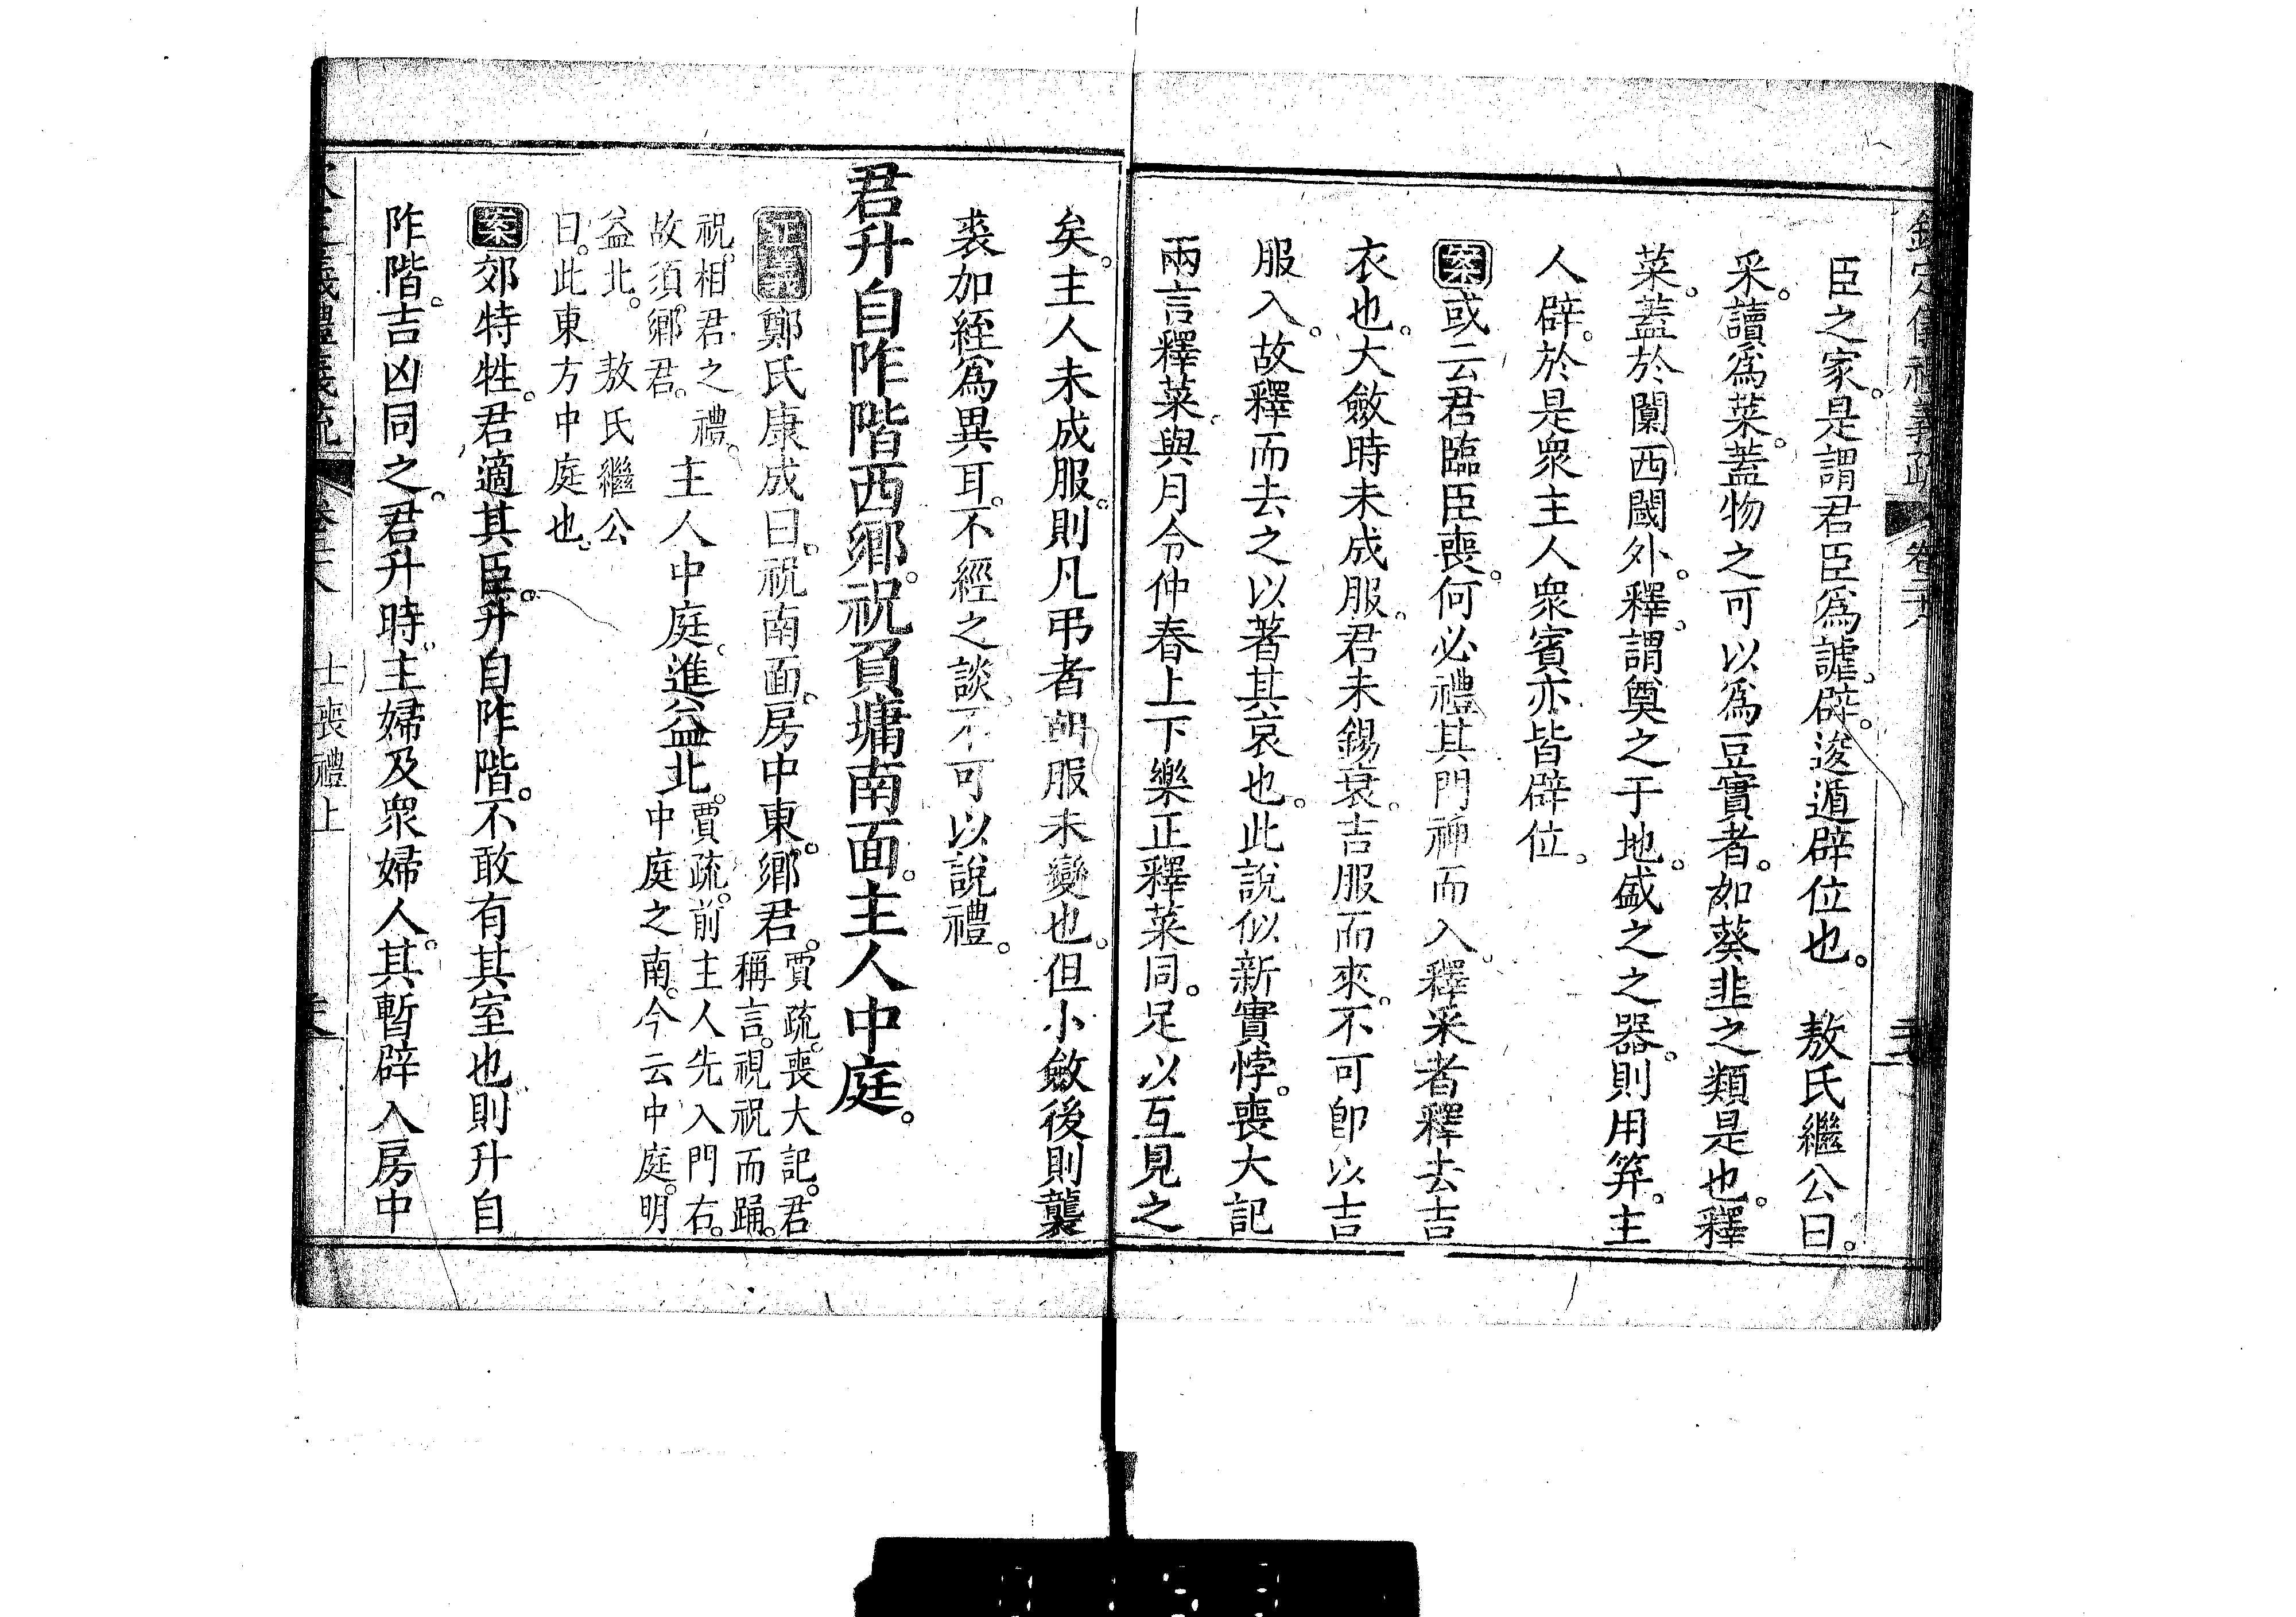 欽定儀禮義疏 卷二十八
臣之家。是謂君臣爲謔。辟。逡遁辟位也。 敖氏繼公曰。
采。讀爲菜。蓋物之可以爲豆實者。如葵韭之類是也。釋
菜。蓋於闑西閾外。釋。謂奠之于地。盛之之器。則用笲。主
人辟。於是衆主人衆賓亦皆辟位。
案或云君臨臣喪。何必禮其門神而入。釋采者釋去吉
衣也。大斂時未成服。君未錫衰。吉服而來。不可卽以吉
服入。故釋而去之以著其哀也。此說似新實悖。喪大記
兩言釋菜。與月令仲春上下樂正釋菜同。足以互見之
矣。主人未成服。則凡弔者朝服未變也。但小斂後則襲
裘加絰爲異耳。不經之談。不可以說禮。
君升自阼階西鄉。祝負墉南面。主人中庭。
正義鄭氏康成曰。祝南面。房中東。鄉君。賈疏。喪大記。君
稱言。視祝而踊。
祝。相君之禮。
故須鄉君。主人中庭。進益北。賈疏。前主人先入門右。
中庭之南。今云中庭。明
益北。 敖氏繼公
曰。此東方中庭也。
案郊特牲。君適其臣。升自阼階。不敢有其室也則升自
阼階。吉凶同之。君升時。主婦及衆婦人。其暫辟入房中
士喪禮上